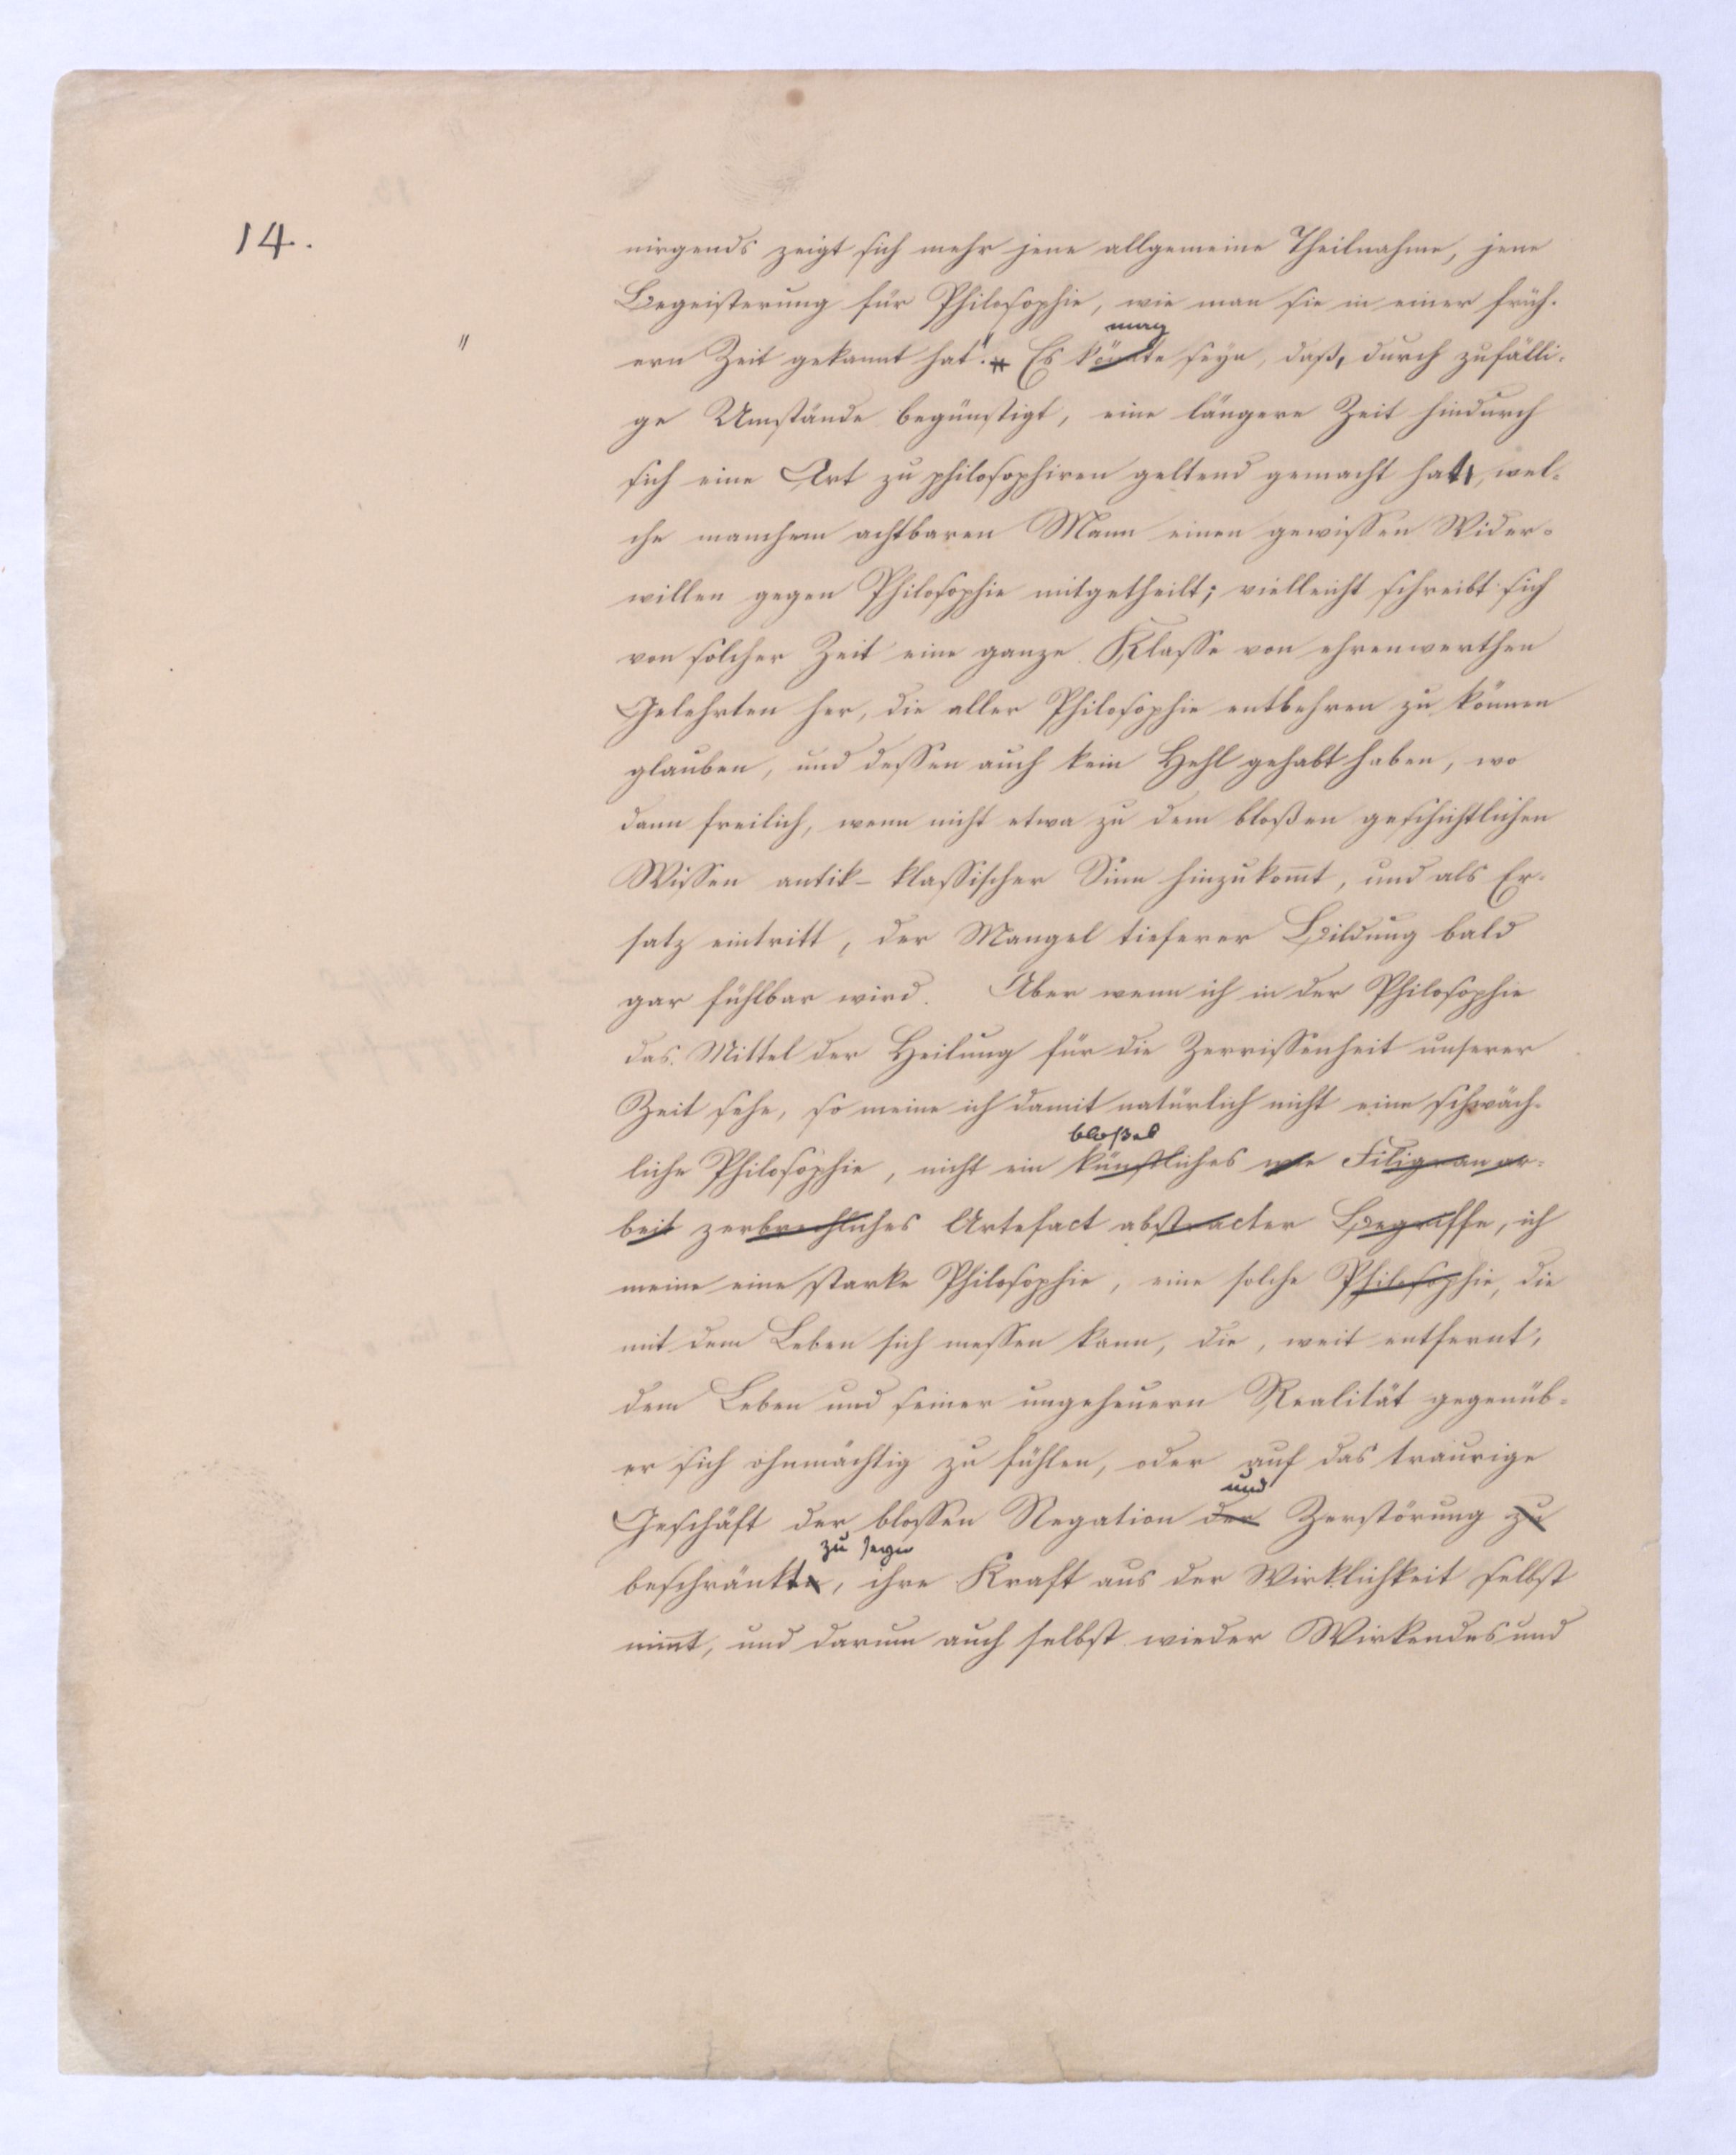 14.
nirgends zeigt sich mehr jene allgemeine Theilnahme, jene
Begeisterung für Philosophie, wie man sie in einer früh-
"
mag
ern Zeit gekannt hat". Es könnte seyn, daß, durch zufälli-
ge Umstände begünstigt, eine längere Zeit hindurch
sich eine Art zu philosophiren geltend gemacht hat, wel-
che manchem achtbaren Mann einen gewissen Wider-
willen gegen Philosophie mitgetheilt; vielleicht schreibt sich
von solcher Zeit eine ganze Klasse von ehrenwerthen
Gelehrten her, die aller Philosophie entbehren zu können
glauben, und dessen auch kein Hehl gehabt haben, wo
dann freilich, wenn nicht etwa zu dem bloßen geschichtlichen
Wissen antik-klassischer Sinn hinzukom̄t, und als Er-
satz eintritt, der Mangel tieferer Bildung bald
gar fühlbar wird. Aber wenn ich in der Philosophie
das Mittel der Heilung für die Zerrissenheit unserer
Zeit sehe, so meine ich damit natürlich nicht eine schwäch-
bloßes
liche Philosophie, nicht ein künstliches wie Filigranar-
beit zerbrechliches Artefact abstracter Begriffe, ich
meine eine starke Philosophie, eine solche Philosophie, die
mit dem Leben sich messen kann, die, weit entfernt,
dem Leben und seiner ungeheuern Realität gegenüb-
er sich ohnmächtig zu fühlen, oder auf das traurige
und
Geschäft der blossen Negation der Zerstörung zu
zu seyn
beschränkten, ihre Kraft aus der Wirklichkeit selbst
nim̄t, und darum auch selbst wieder Wirkendes und